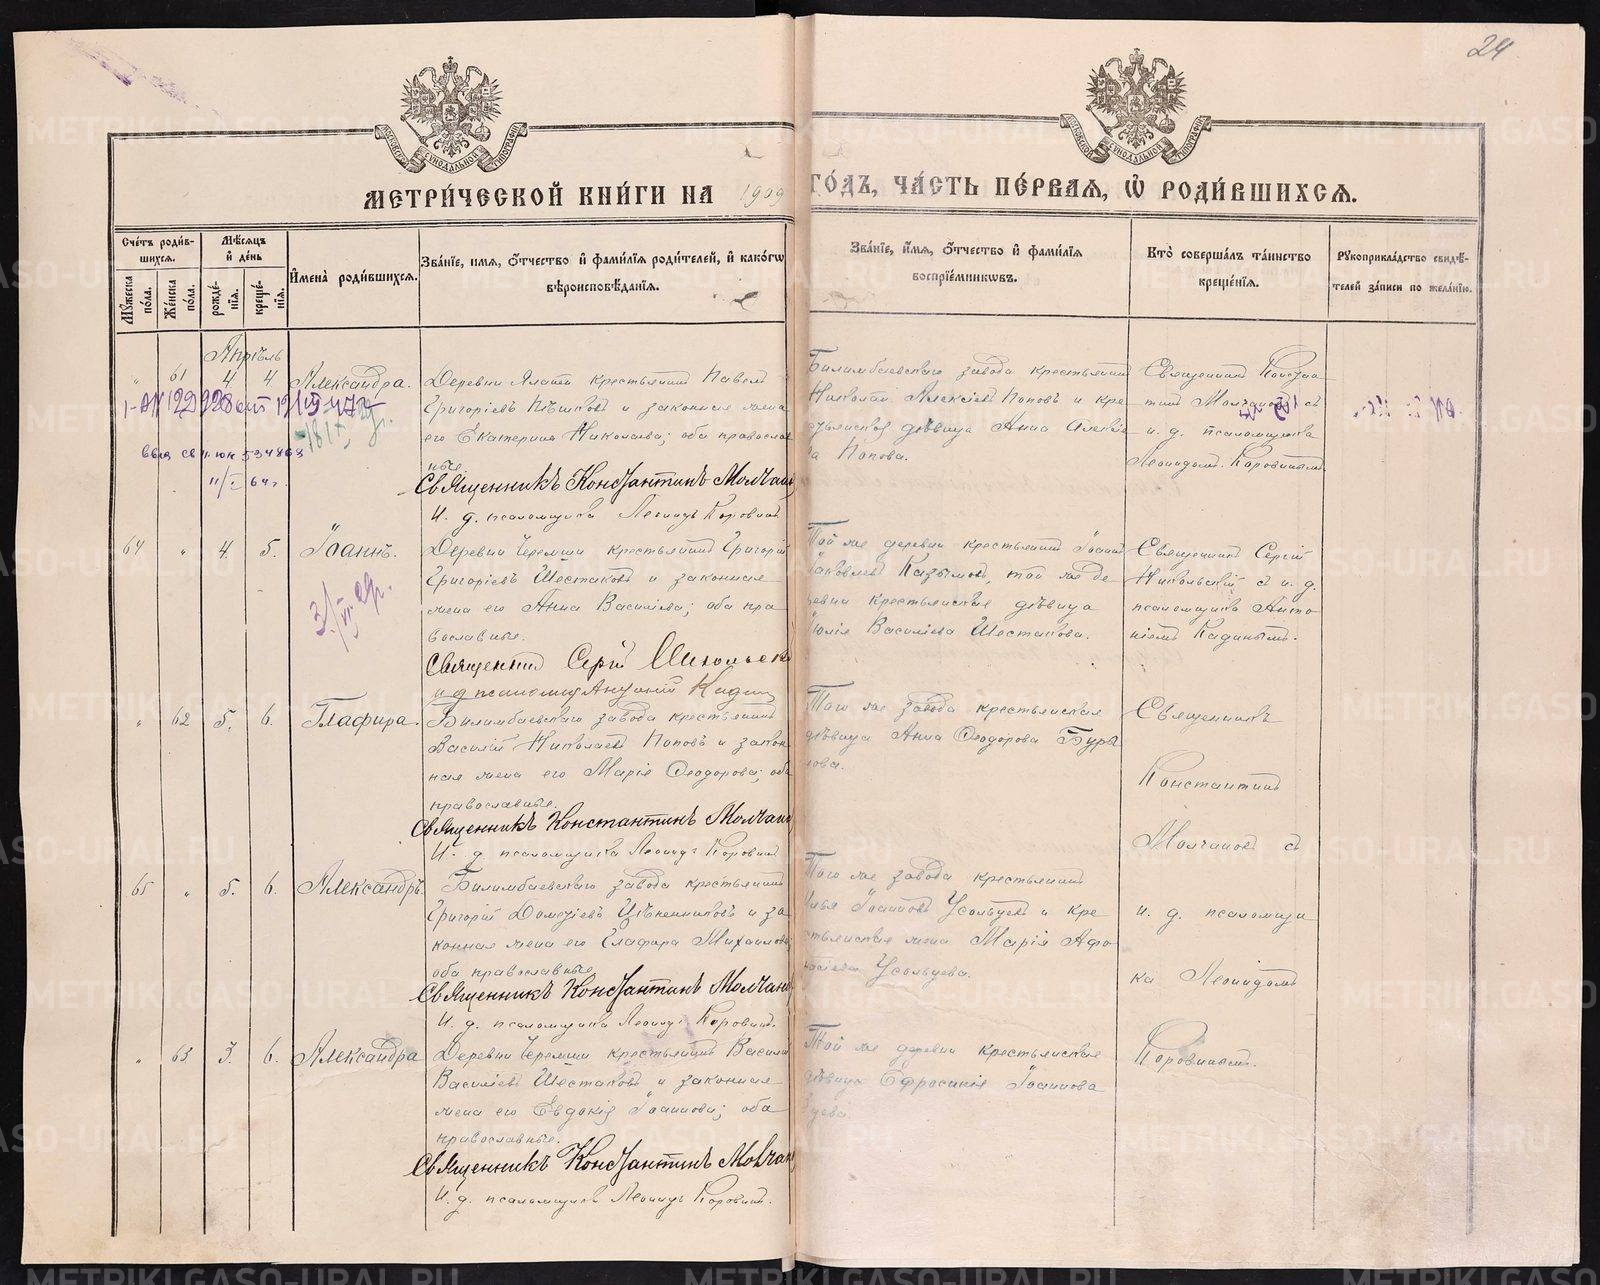 24
МЕТРИЧЕСКОЙ КНИГИ НА 1909 ГОДЪ, ЧАСТЬ ПЕРВАЯ, Ѡ РОДИВШИХСЯ.
Счетъ родив-
шихся.
Мужеска пола.
Женска пола.
Мѣсяцъ и день
рожде-
нія.
креще-
нія.
Имена родившихся.
Званіе, имя, отчество и фамилія родителей, и какогѡ
вѣроисповѣданія.
Званіе, имя, отчество и фамилія
воспріемниковъ.
Кто совершалъ таинство
крещенія.
Рукоприкладство свидѣ-
телей записи по желанію.
Апрѣль
" 61 4 4 Александра.
Деревни крестьянинъ Павелъ
Григоріевъ Пѣшковъ и законная жена
его Екатерина Николаева; оба православ
ные.
Священникъ Константинъ Молчанов
И. д. псаломщика Леонидъ Коровинъ
Билимбаевскаго завода крестьянинъ
Николай Алексіевъ Поповъ и кре
стьянская дѣвица Анна Алексіе
ва Попова.
Священникъ Констан
тинъ Молчановъ съ
и. д. псаломщика
Леонидомъ Коровинымъ.
64 " 4. 5. Іоаннъ.
Деревни Черемши крестьянинъ Григорій
Григоріевъ Шестаковъ и законная
жена его Анна Василіева; оба пра
вославные.
Священникъ Сергій Никольск
и д псаломщ Антоній Кадин
Той же деревни крестьянинъ Іоаннъ
Іаковлевъ Казымовъ, той же де
ревни крестьянская дѣвица
Юлія Василіева Шестакова.
Священникъ Сергій
Никольскій съ и. д.
псаломщика Анто
ніемъ Кадинымъ.
" 62 5. 6. Глафира.
Билимбаевскаго завода крестьянинъ
Василій Николаевъ Поповъ и закон
ная жена его Марія Ѳеодорова; оба
православные.
Священникъ Константинъ Молчанов
И. д. псаломщика Леонидъ Коровинъ
Того же завода крестьянская
дѣвица Анна Ѳеодорова Буры
лова.
Священникъ
Константинъ
Молчановъ съ
и. д. псаломщи
ка Леонидомъ
Коровинымъ.
65 " 5. 6. Александръ.
Билимбаевскаго завода крестьянинъ
Григорій Дометіевъ Цѣненниковъ и за
конная жена его Глафира Михаилова
оба православные
Священникъ Константинъ Молчанов
И. д. псаломщика Леонидъ Коровинъ.
Того же завода крестьянинъ
Илья Іоанновъ Усольцевъ и кре
стьянская жена Марія Афо
насіева Усольцева.
" 63 3. 6. Александра
Деревни Черемши крестьянинъ Василій
Василіевъ Шестаковъ и законная
жена его Евдокія Іоаннова; оба
православные.
Священникъ Константинъ Молчан
И. д. псаломщика Леонидъ Коровинъ.
Той же деревни крестьянская
дѣвица Ефросинія Іоаннова
METRIKI.GASO-URAL.RU